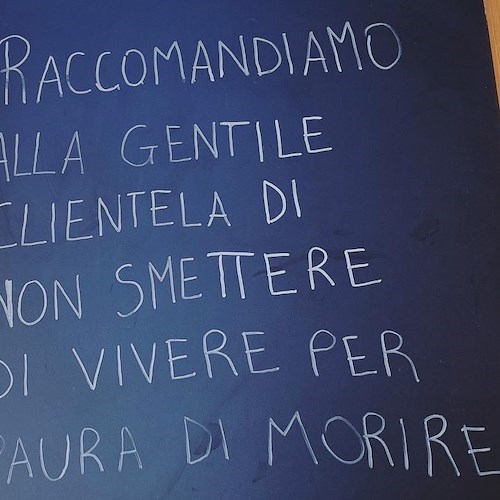 RACCOMANDIAMO
ALLA GENTILE
CLIENTELA DI
NON SMETTERE
DI VIVERE PER
PAURA DI MORIRE